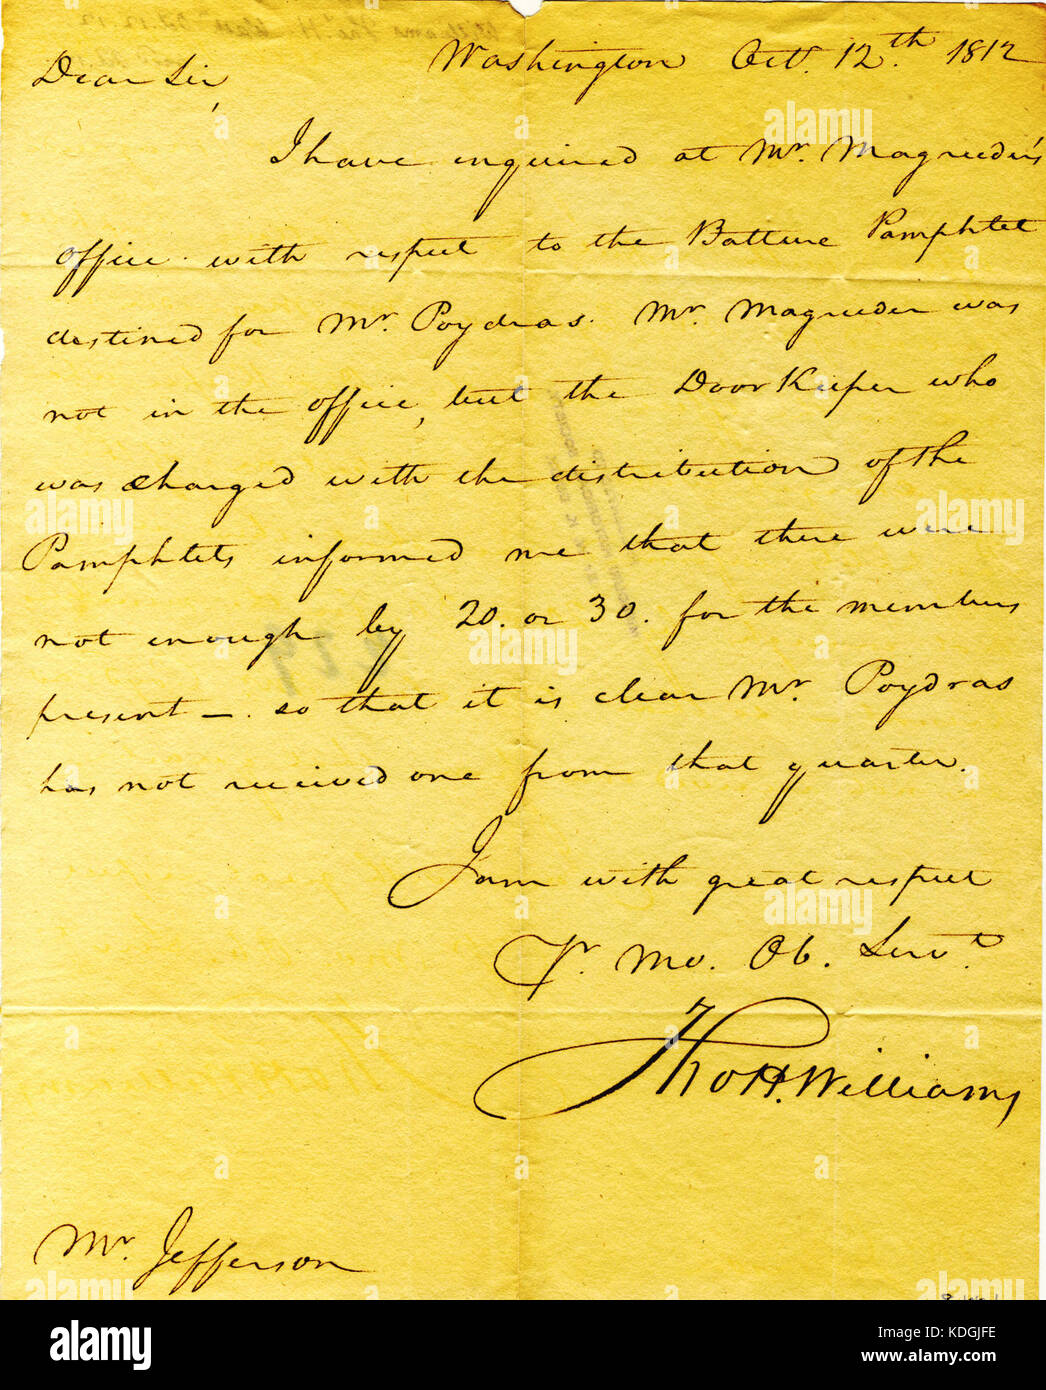 Washington Oct. 12th. 1812
Dear Sir,
I have enquired at Mr. Magruder's
office with respect to the Batture Pamphlet
destined for Mr. Poydras. Mr. Magruder was
not in the office, but the Door Keeper who
was charged with the distribution of the
Pamphlets informed me that there were
not enough by 20. or 30. for the members
present —. so that it is clear Mr. Poydras
has not received one from that quarter.
I am with great respect
Yr. Mo. Ob. Servt.
Tho H. Williams
Mr. Jefferson
alamy
Image ID: KDGJFE
www.alamy.com